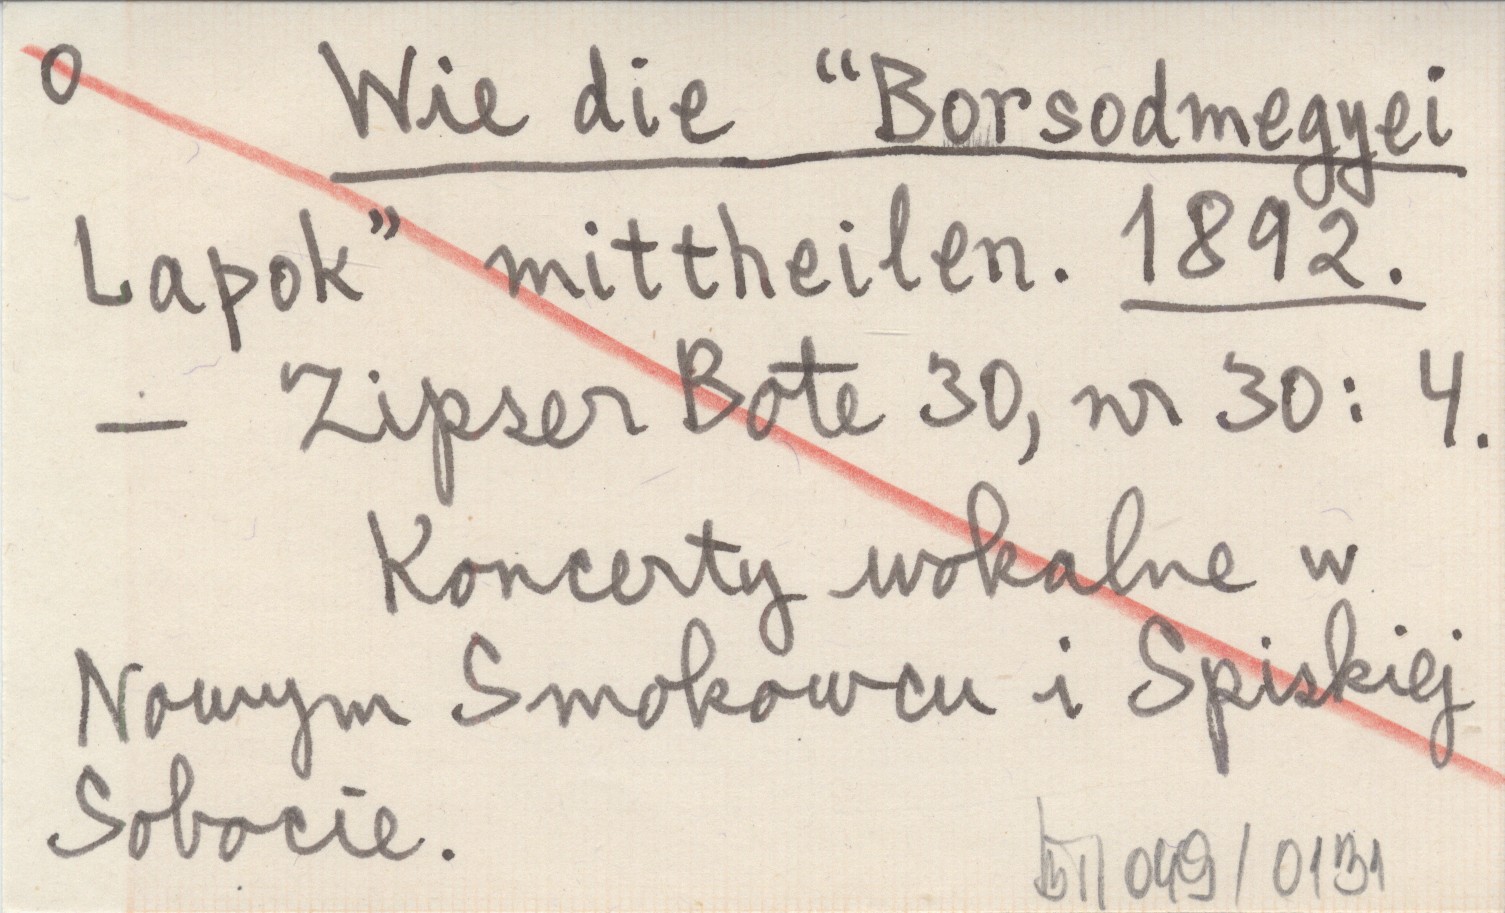 0 Wie die “Borsodmegyei
Lapok” mittheilen. 1892.
— Zipser Bote 30, nr 30: 4.
Koncerty wokalne w
Nowym Smokowcu i Spiskiej
Sobocie.
049/0131